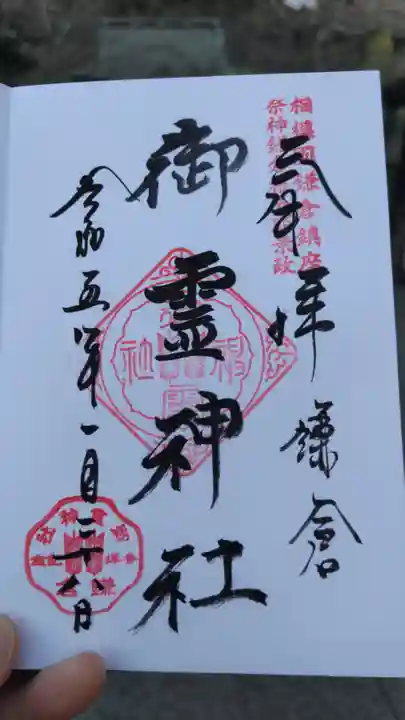 相模国鎌倉鎮座
祭神鎌倉権五郎景政
奉拝 鎌倉
御霊神社
令和五年一月二十八日